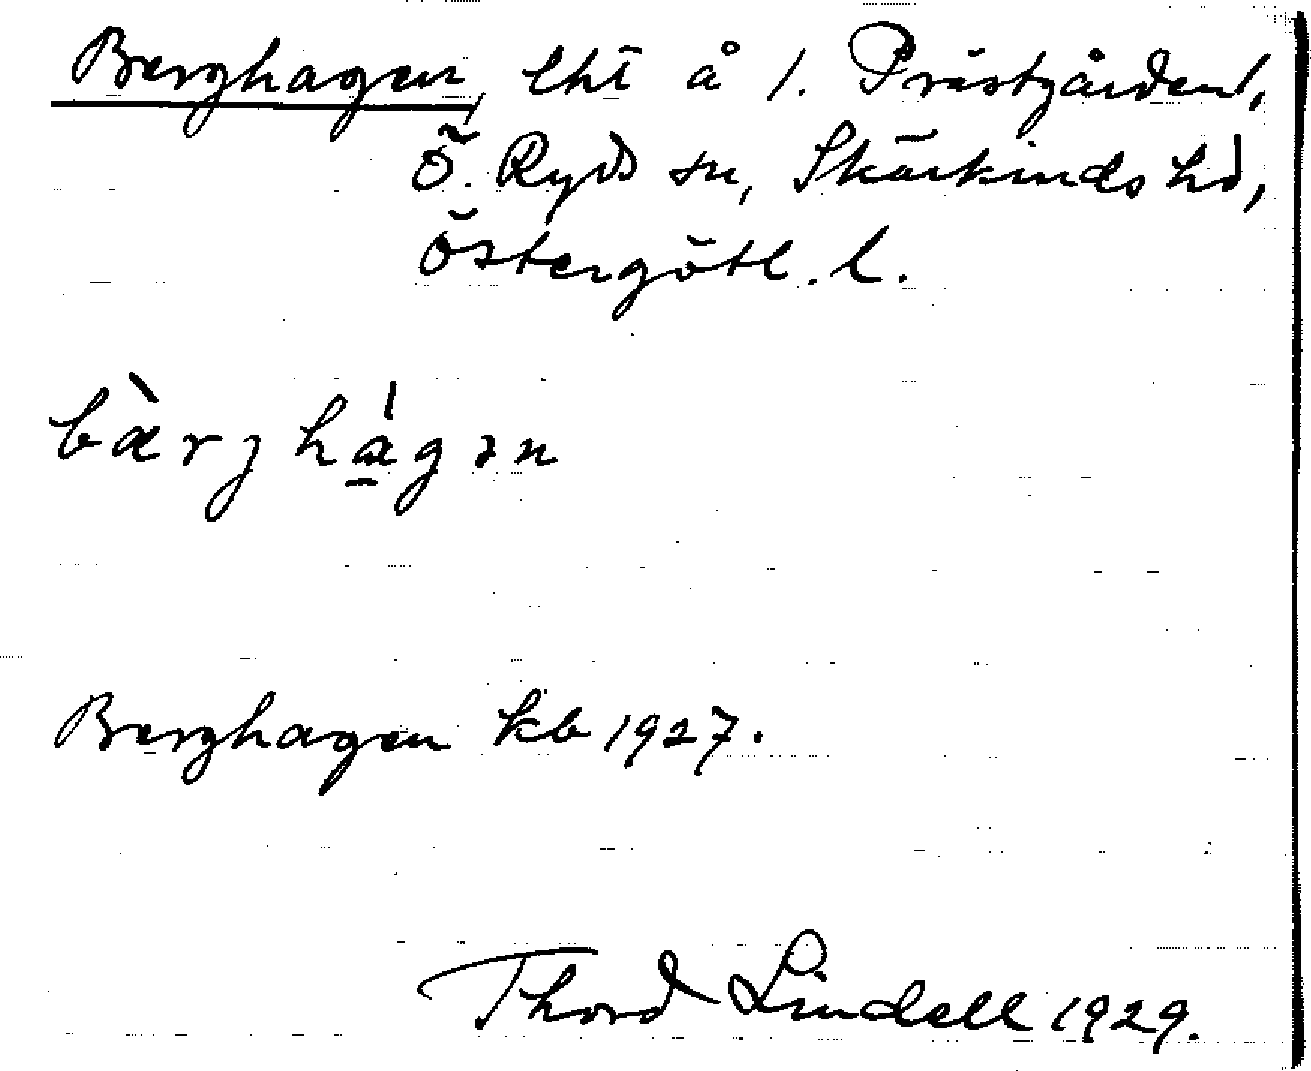 Berghagen, lht å 1. Prästgården,
Ö. Ryds sn, Skärkinds hd,
Östergötl. l.
bæ̀rjhá̱gən
Berghagen kb 1927.
Thord Lindell 1929.